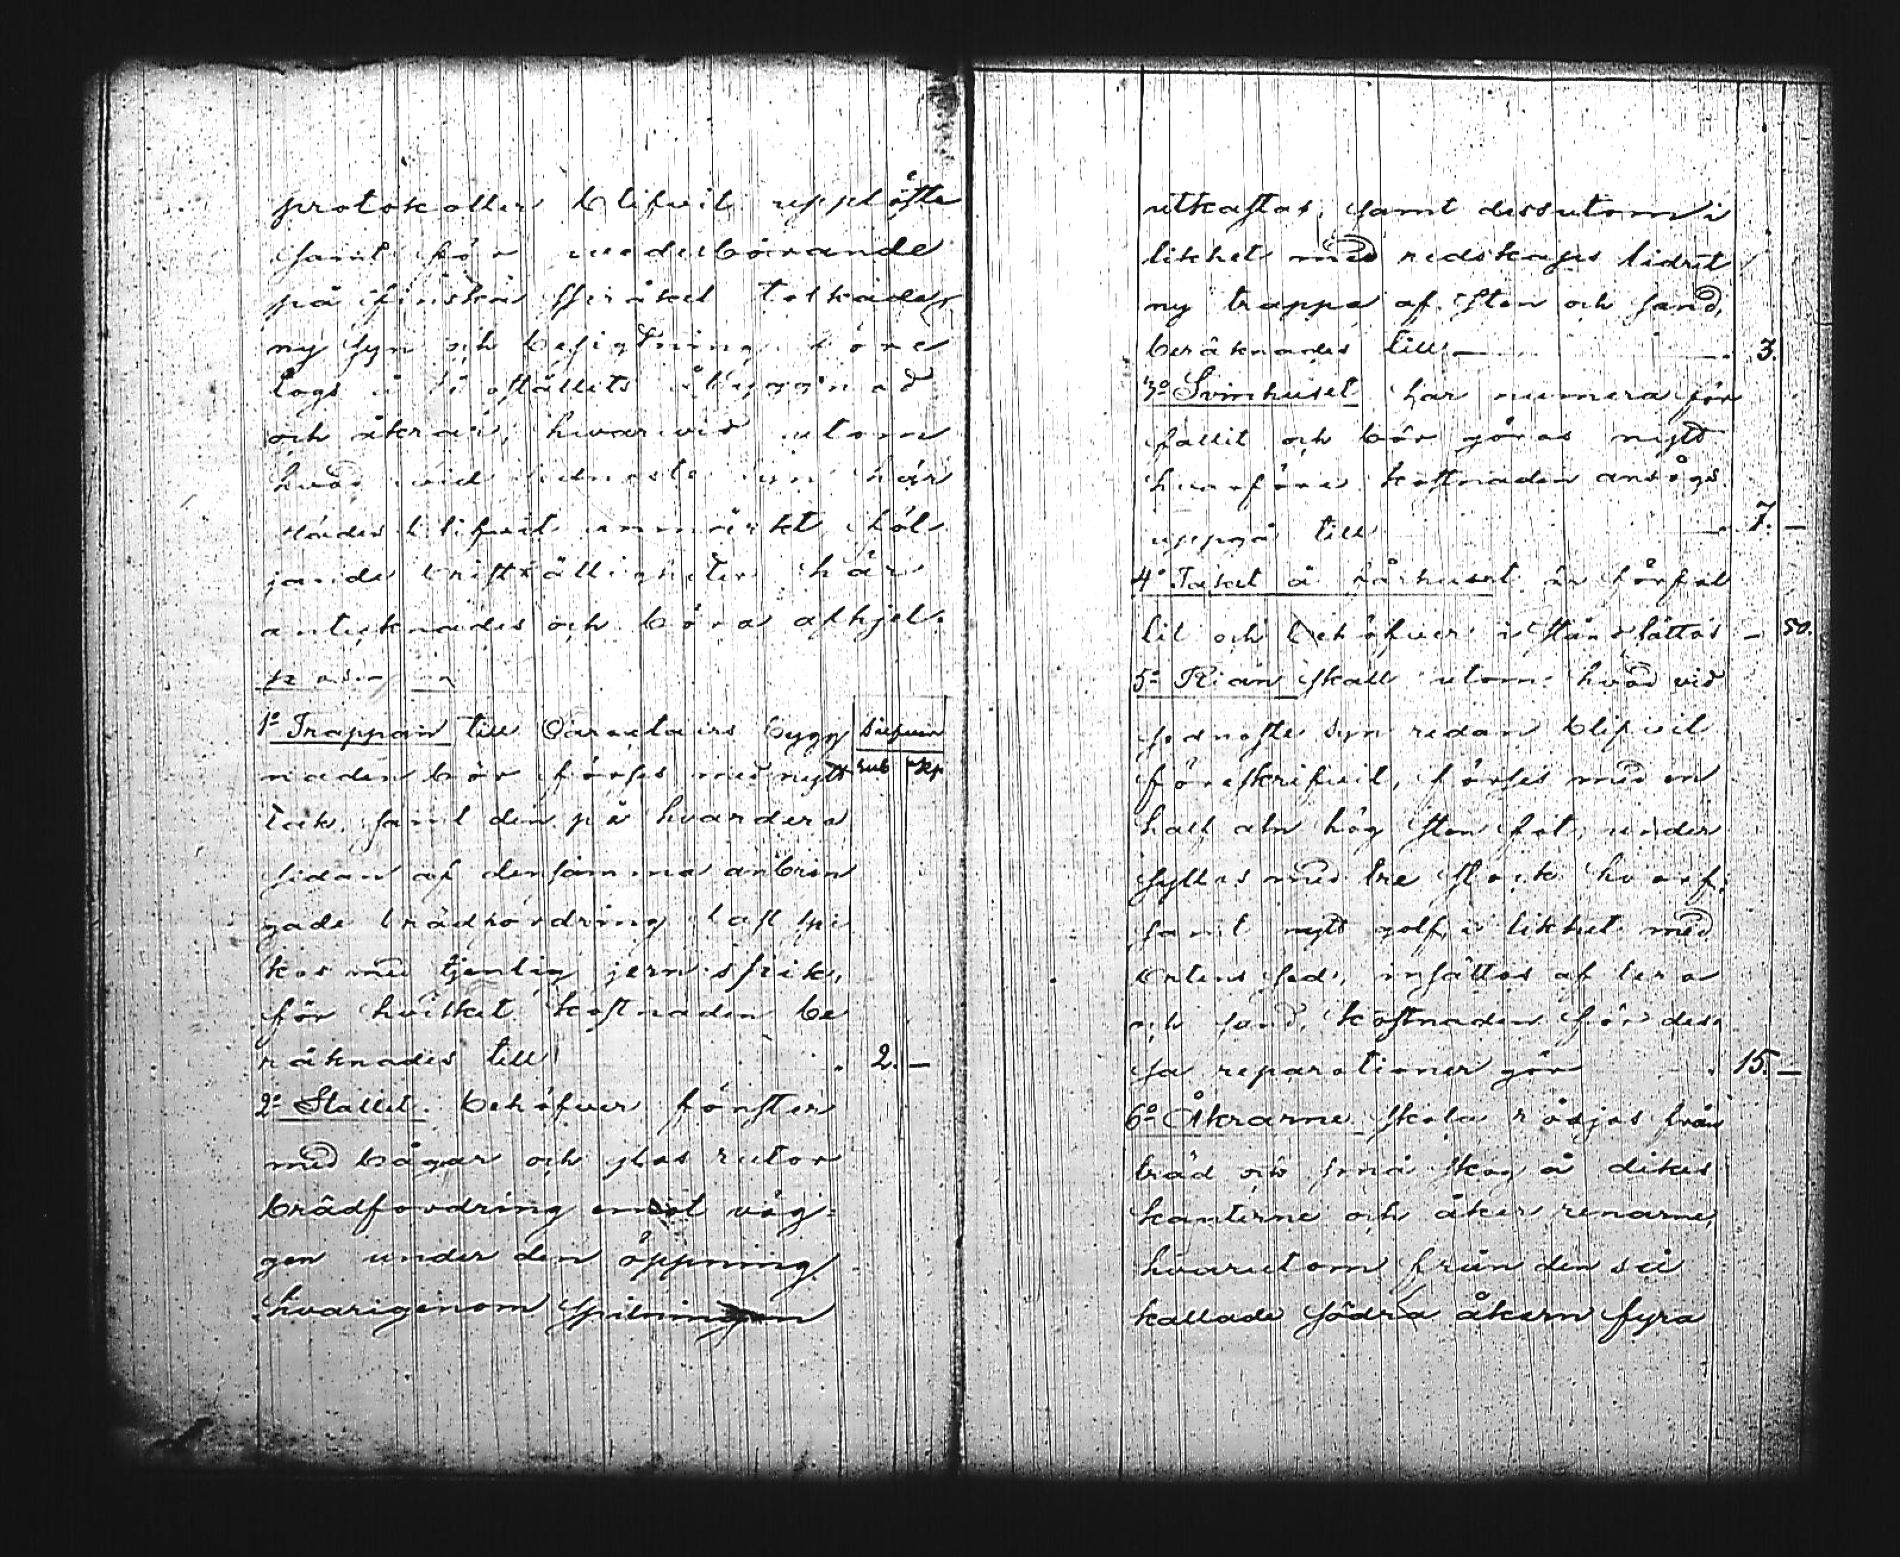 protokoller blifvit uppläste
samt för vederbörande
på finska språket tolkade,
ny syn och besigtning före
togs å boställets åbyggnad
och åkrar, hvarvid utom
hvad vid sednaste syn här
städes blifvit anmärkt föl
jande bristfälligheter här
antecknades och böra afhjel-
pas
1o Trappan till Caracters bygg
naden bör förses med nytt
tak, samt den på hvardera
sidan af densamma anbrin
gade brädfordring fast spi
kas med tjenlig jern spik,
för hvilket kostnaden be
räknades till . 2. —
Silfver
Rub Kop
2o Stallet behöfver fönster
med bågar och glas rutor
brädfordring emot väg-
gen under den öppning
hvarigenom spilningen
utkastas, samt dessutom i
likhet med redskaps lidret
ny trappa af sten och sand,
beräknades till — 3.
3o Svinhuset har numera för
fallit och bör göras nytt
hvarföre kostnaden ansågs
uppgå till . 7. —
4o Taket å fårhuset är förfal
lit och behöfver i stånd sättas — 50.
5o Rian skall utom hvad vid
sednaste syn redan blifvit
föreskrifvit, förses med en
half aln hög sten fot, under
syllas med tre stock hvarf,
samt nytt golf, i likhet med
ortens sed, insättas af lera
och sand. Kostnaden för des-
sa reparationer gör . 15. —
6o Åkrarne skola rödjas från
träd och små skog å dikes
kanterne och åker renarne,
hvarutom från den så
kallade södra åkern fyra